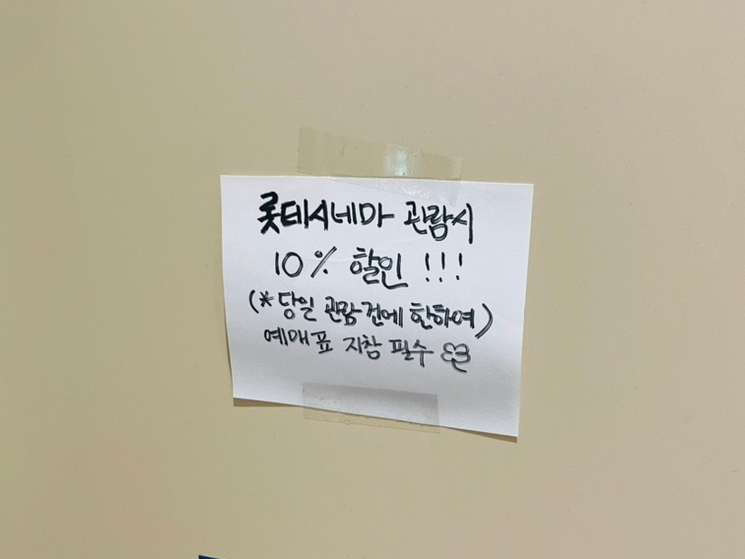 롯데시네마 관람시
10% 할인 !!!
(* 당일 관람건에 한하여)
예매표 지참 필수